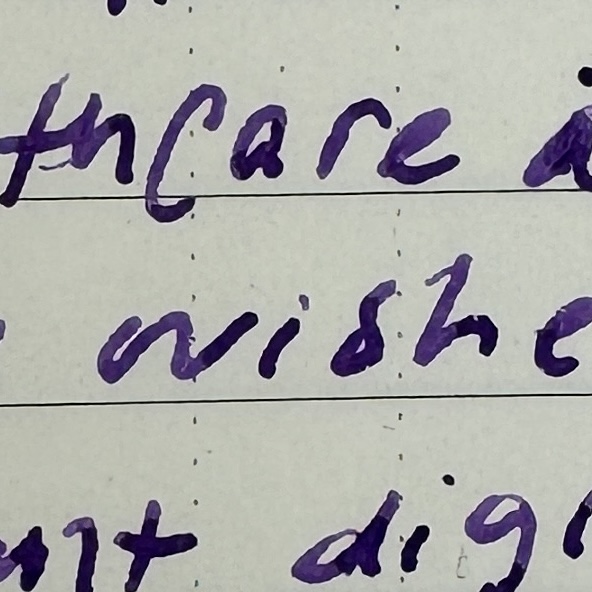 thcare i
wishe
nt dig